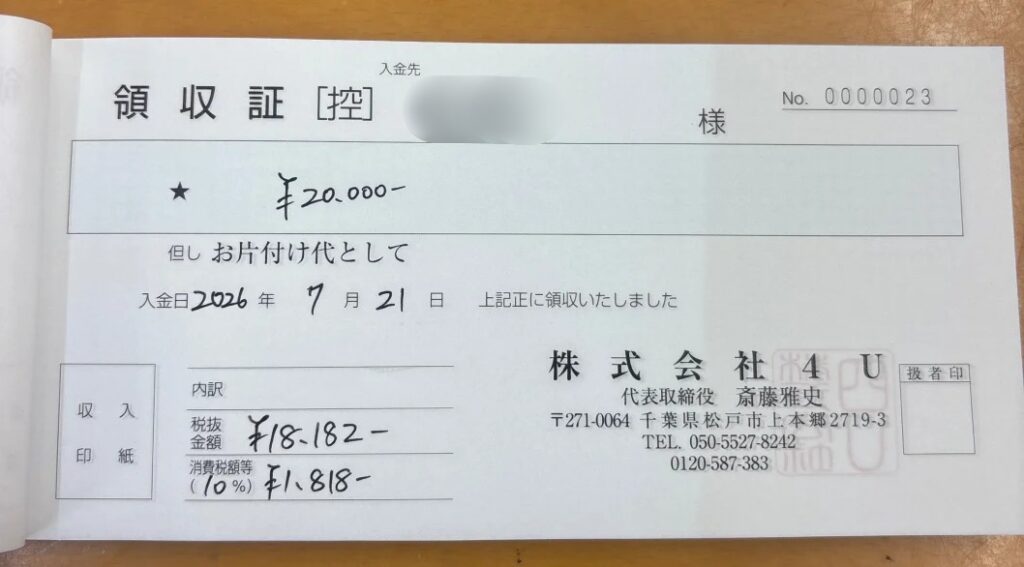 入金先
領収証 [控] 様 No. 0000023
★ ¥20.000-
但し お片付け代として
入金日 2026 年 7 月 21 日 上記正に領収いたしました
収入
印紙
内訳
税抜金額 ¥18.182-
消費税額等(10%) ¥1.818-
株式会社4U
代表取締役 斎藤雅史
〒271-0064 千葉県松戸市上本郷2719-3
TEL. 050-5527-8242
0120-587-383
扱者印